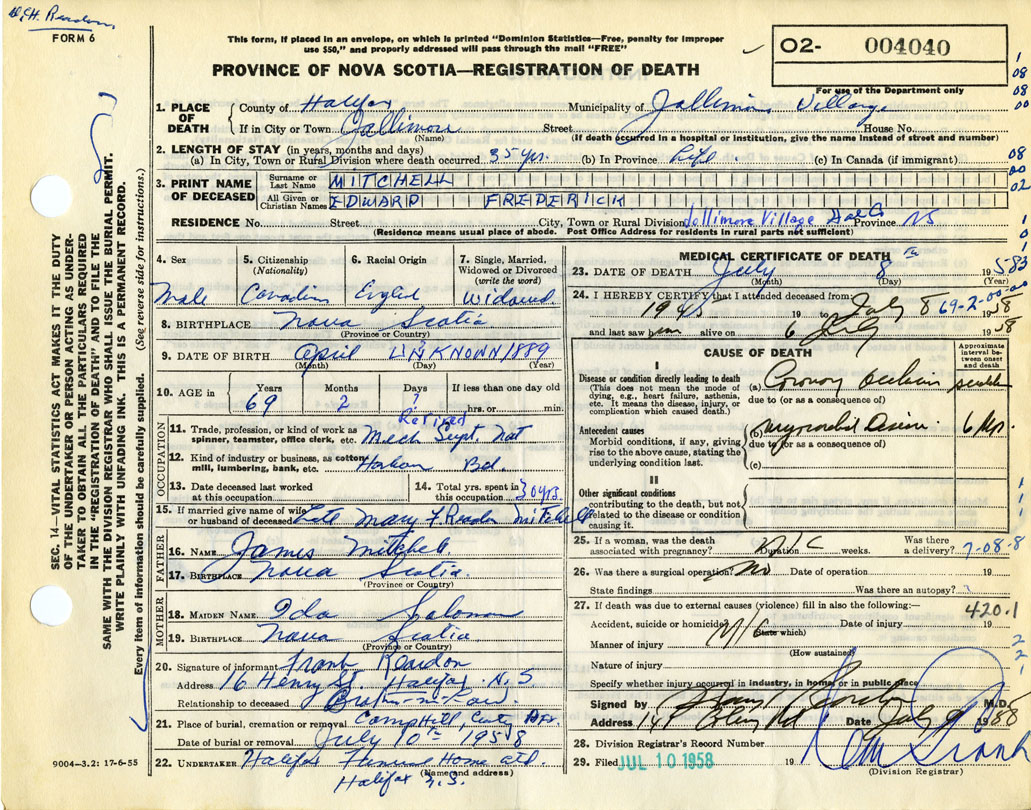 FORM 6
This form, if placed in an envelope, on which is printed "Dominion Statistics—Free, penalty for improper
use $50," and properly addressed will pass through the mail "FREE"
PROVINCE OF NOVA SCOTIA—REGISTRATION OF DEATH
02- 004040
For use of the Department only
SEC. 14—VITAL STATISTICS ACT MAKES IT THE DUTY
OF THE UNDERTAKER OR PERSON ACTING AS UNDER-
TAKER TO OBTAIN ALL THE PARTICULARS REQUIRED
IN THE "REGISTRATION OF DEATH" AND TO FILE THE
SAME WITH THE DIVISION REGISTRAR WHO SHALL ISSUE THE BURIAL PERMIT.
WRITE PLAINLY WITH UNFADING INK. THIS IS A PERMANENT RECORD.
Every item of information should be carefully supplied. (See reverse side for instructions.)
1. PLACE OF DEATH
County of Halifax Municipality of Jollimore Village
If in City or Town Jollimore Street House No.
(Name) (If death occurred in a hospital or institution, give the name instead of street and number)
2. LENGTH OF STAY (in years, months and days)
(a) In City, Town or Rural Division where death occurred 35 yrs. (b) In Province Life. (c) In Canada (if immigrant)
3. PRINT NAME OF DECEASED
Surname or Last Name MITCHELL
All Given or Christian Names EDWARD FREDERICK
RESIDENCE No. Street City, Town or Rural Division Jollimore Village Hal Co Province NS
(Residence means usual place of abode. Post Office Address for residents in rural parts not sufficient)
4. Sex Male
5. Citizenship (Nationality) Canadian
6. Racial Origin English
7. Single, Married, Widowed or Divorced (write the word) Widowed
8. BIRTHPLACE Nova Scotia
(Province or Country)
9. DATE OF BIRTH April UNKNOWN 1889
(Month) (Day) (Year)
10. AGE in Years 69 Months 2 Days ? If less than one day old hrs. or min.
OCCUPATION
Retired
11. Trade, profession, or kind of work as spinner, teamster, office clerk, etc. Mech Supt. Nat
12. Kind of industry or business, as cotton mill, lumbering, bank, etc. Harbour Bd.
13. Date deceased last worked at this occupation
14. Total yrs. spent in this occupation 30 yrs.
15. If married give name of wife or husband of deceased Late Mary F. Reardon Mitchell
FATHER
16. NAME James Mitchell.
17. BIRTHPLACE Nova Scotia.
(Province or Country)
MOTHER
18. MAIDEN NAME Ida
19. BIRTHPLACE Nova Scotia.
(Province or Country)
20. Signature of informant Frank Reardon
Address 16 Henry St. Halifax. N.S
Relationship to deceased Brother-in-law.
21. Place of burial, cremation or removal Camphill, Cemty Hfx.
Date of burial or removal July 10th 1958
22. UNDERTAKER Halifax Funeral Home Ltd.
(Name and address)
Halifax N.S.
9004—3.2: 17-6-55
MEDICAL CERTIFICATE OF DEATH
23. DATE OF DEATH July 8th 1958
(Month) (Day) (Year)
24. I HEREBY CERTIFY that I attended deceased from:
1945 19 to July 8 1958
and last saw him alive on 6 July 1958
69-2-00-00
CAUSE OF DEATH
Approximate interval between onset and death
I
Disease or condition directly leading to death
(This does not mean the mode of dying, e.g., heart failure, asthenia, etc. It means the disease, injury, or complication which caused death.)
(a) Coronary Occlusion sudden
due to (or as a consequence of)
Antecedent causes
Morbid conditions, if any, giving rise to the above cause, stating the underlying condition last.
(b) Myocardial Disease 6 yrs.
due to (or as a consequence of)
(c)
II
Other significant conditions
contributing to the death, but not related to the disease or condition causing it.
25. If a woman, was the death associated with pregnancy? Duration weeks. Was there a delivery? 7-08-8
26. Was there a surgical operation? No Date of operation 19
State findings Was there an autopsy?
27. If death was due to external causes (violence) fill in also the following:—
420.1
Accident, suicide or homicide? (State which) Date of injury 19
Manner of injury
(How sustained)
Nature of injury
Specify whether injury occurred in industry, in home or in public place
Signed by M.D.
Address Date July 9 1958
28. Division Registrar's Record Number
29. Filed JUL 10 1958 19
(Division Registrar)